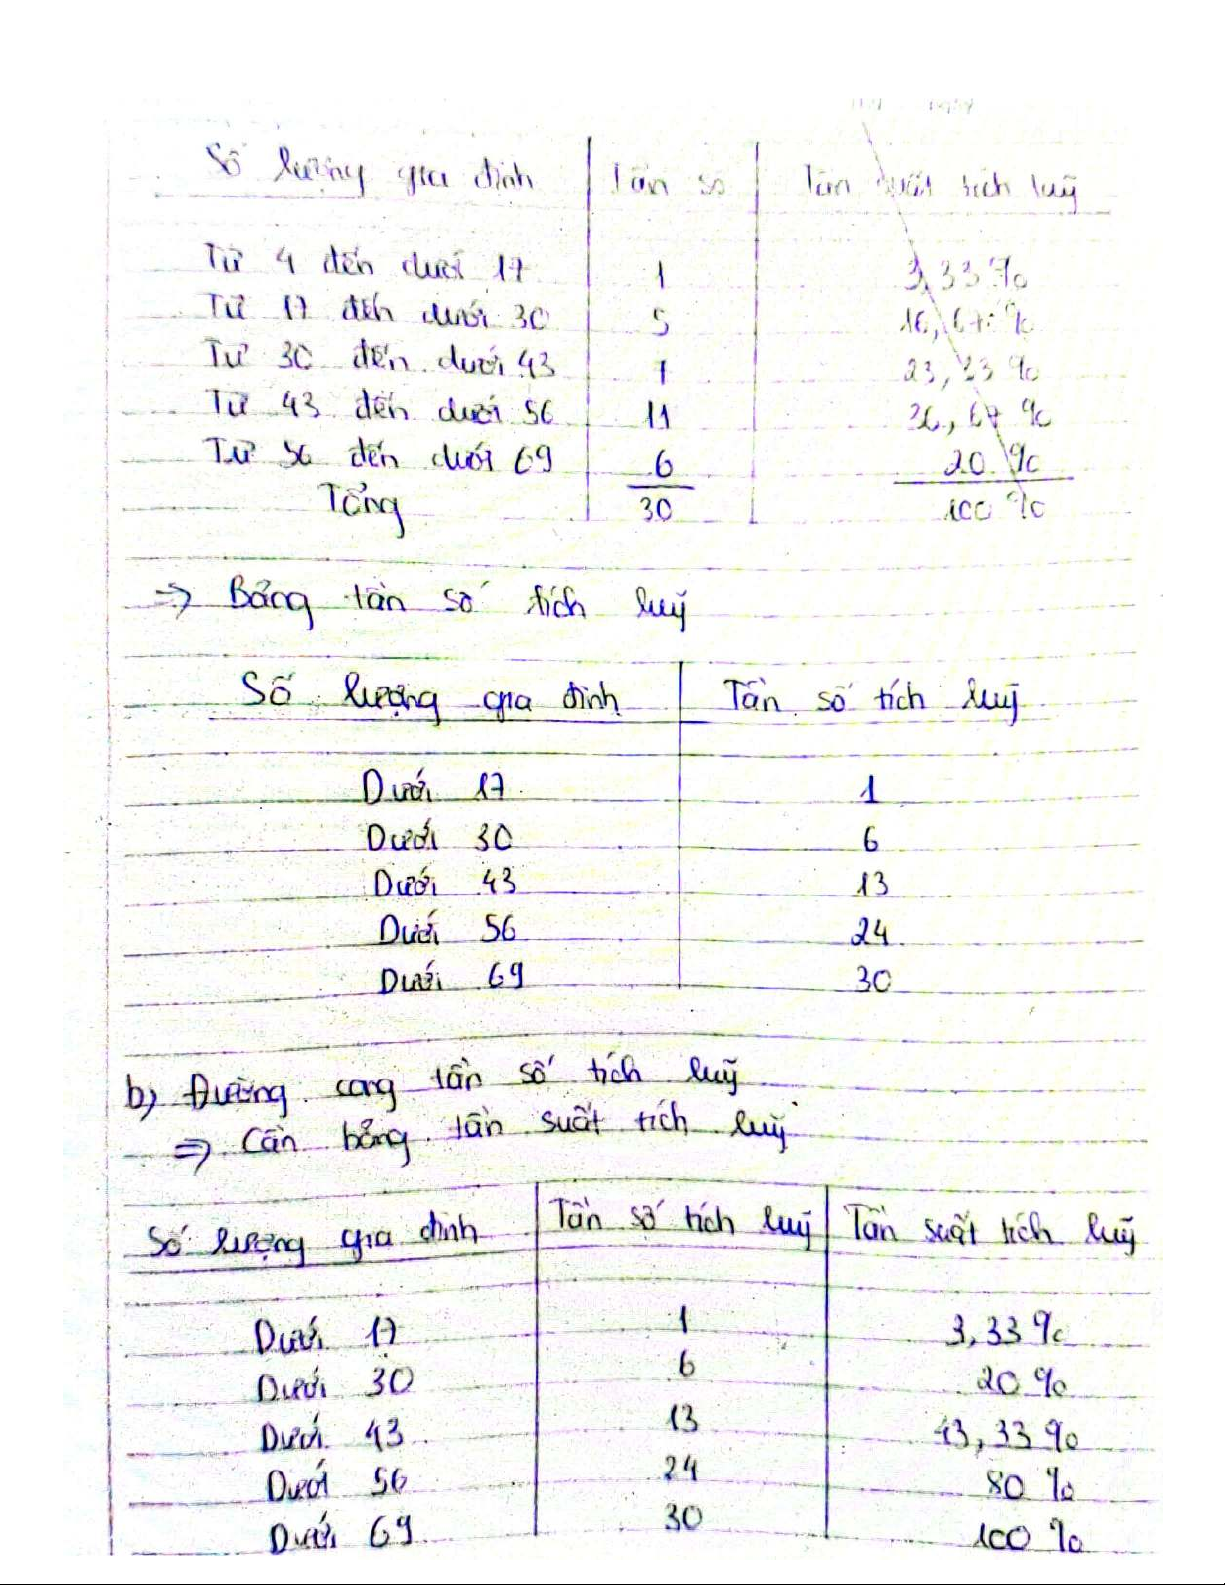 Số lượng gia đình Tần số Tần suất tích luỹ
Từ 4 đến dưới 17 1 3,33 %
Từ 17 đến dưới 30 5 16,67 %
Từ 30 đến dưới 43 7 23,33 %
Từ 43 đến dưới 56 11 36,67 %
Từ 56 đến dưới 69 6 20 %
Tổng 30 100 %
=> Bảng tần số tích luỹ
Số lượng gia đình Tần số tích luỹ
Dưới 17 1
Dưới 30 6
Dưới 43 13
Dưới 56 24
Dưới 69 30
b) Đường cong tần số tích luỹ
=> Cần bảng tần suất tích luỹ
Số lượng gia đình Tần số tích luỹ Tần suất tích luỹ
Dưới 17 1 3,33 %
Dưới 30 6 20 %
Dưới 43 13 43,33 %
Dưới 56 24 80 %
Dưới 69 30 100 %